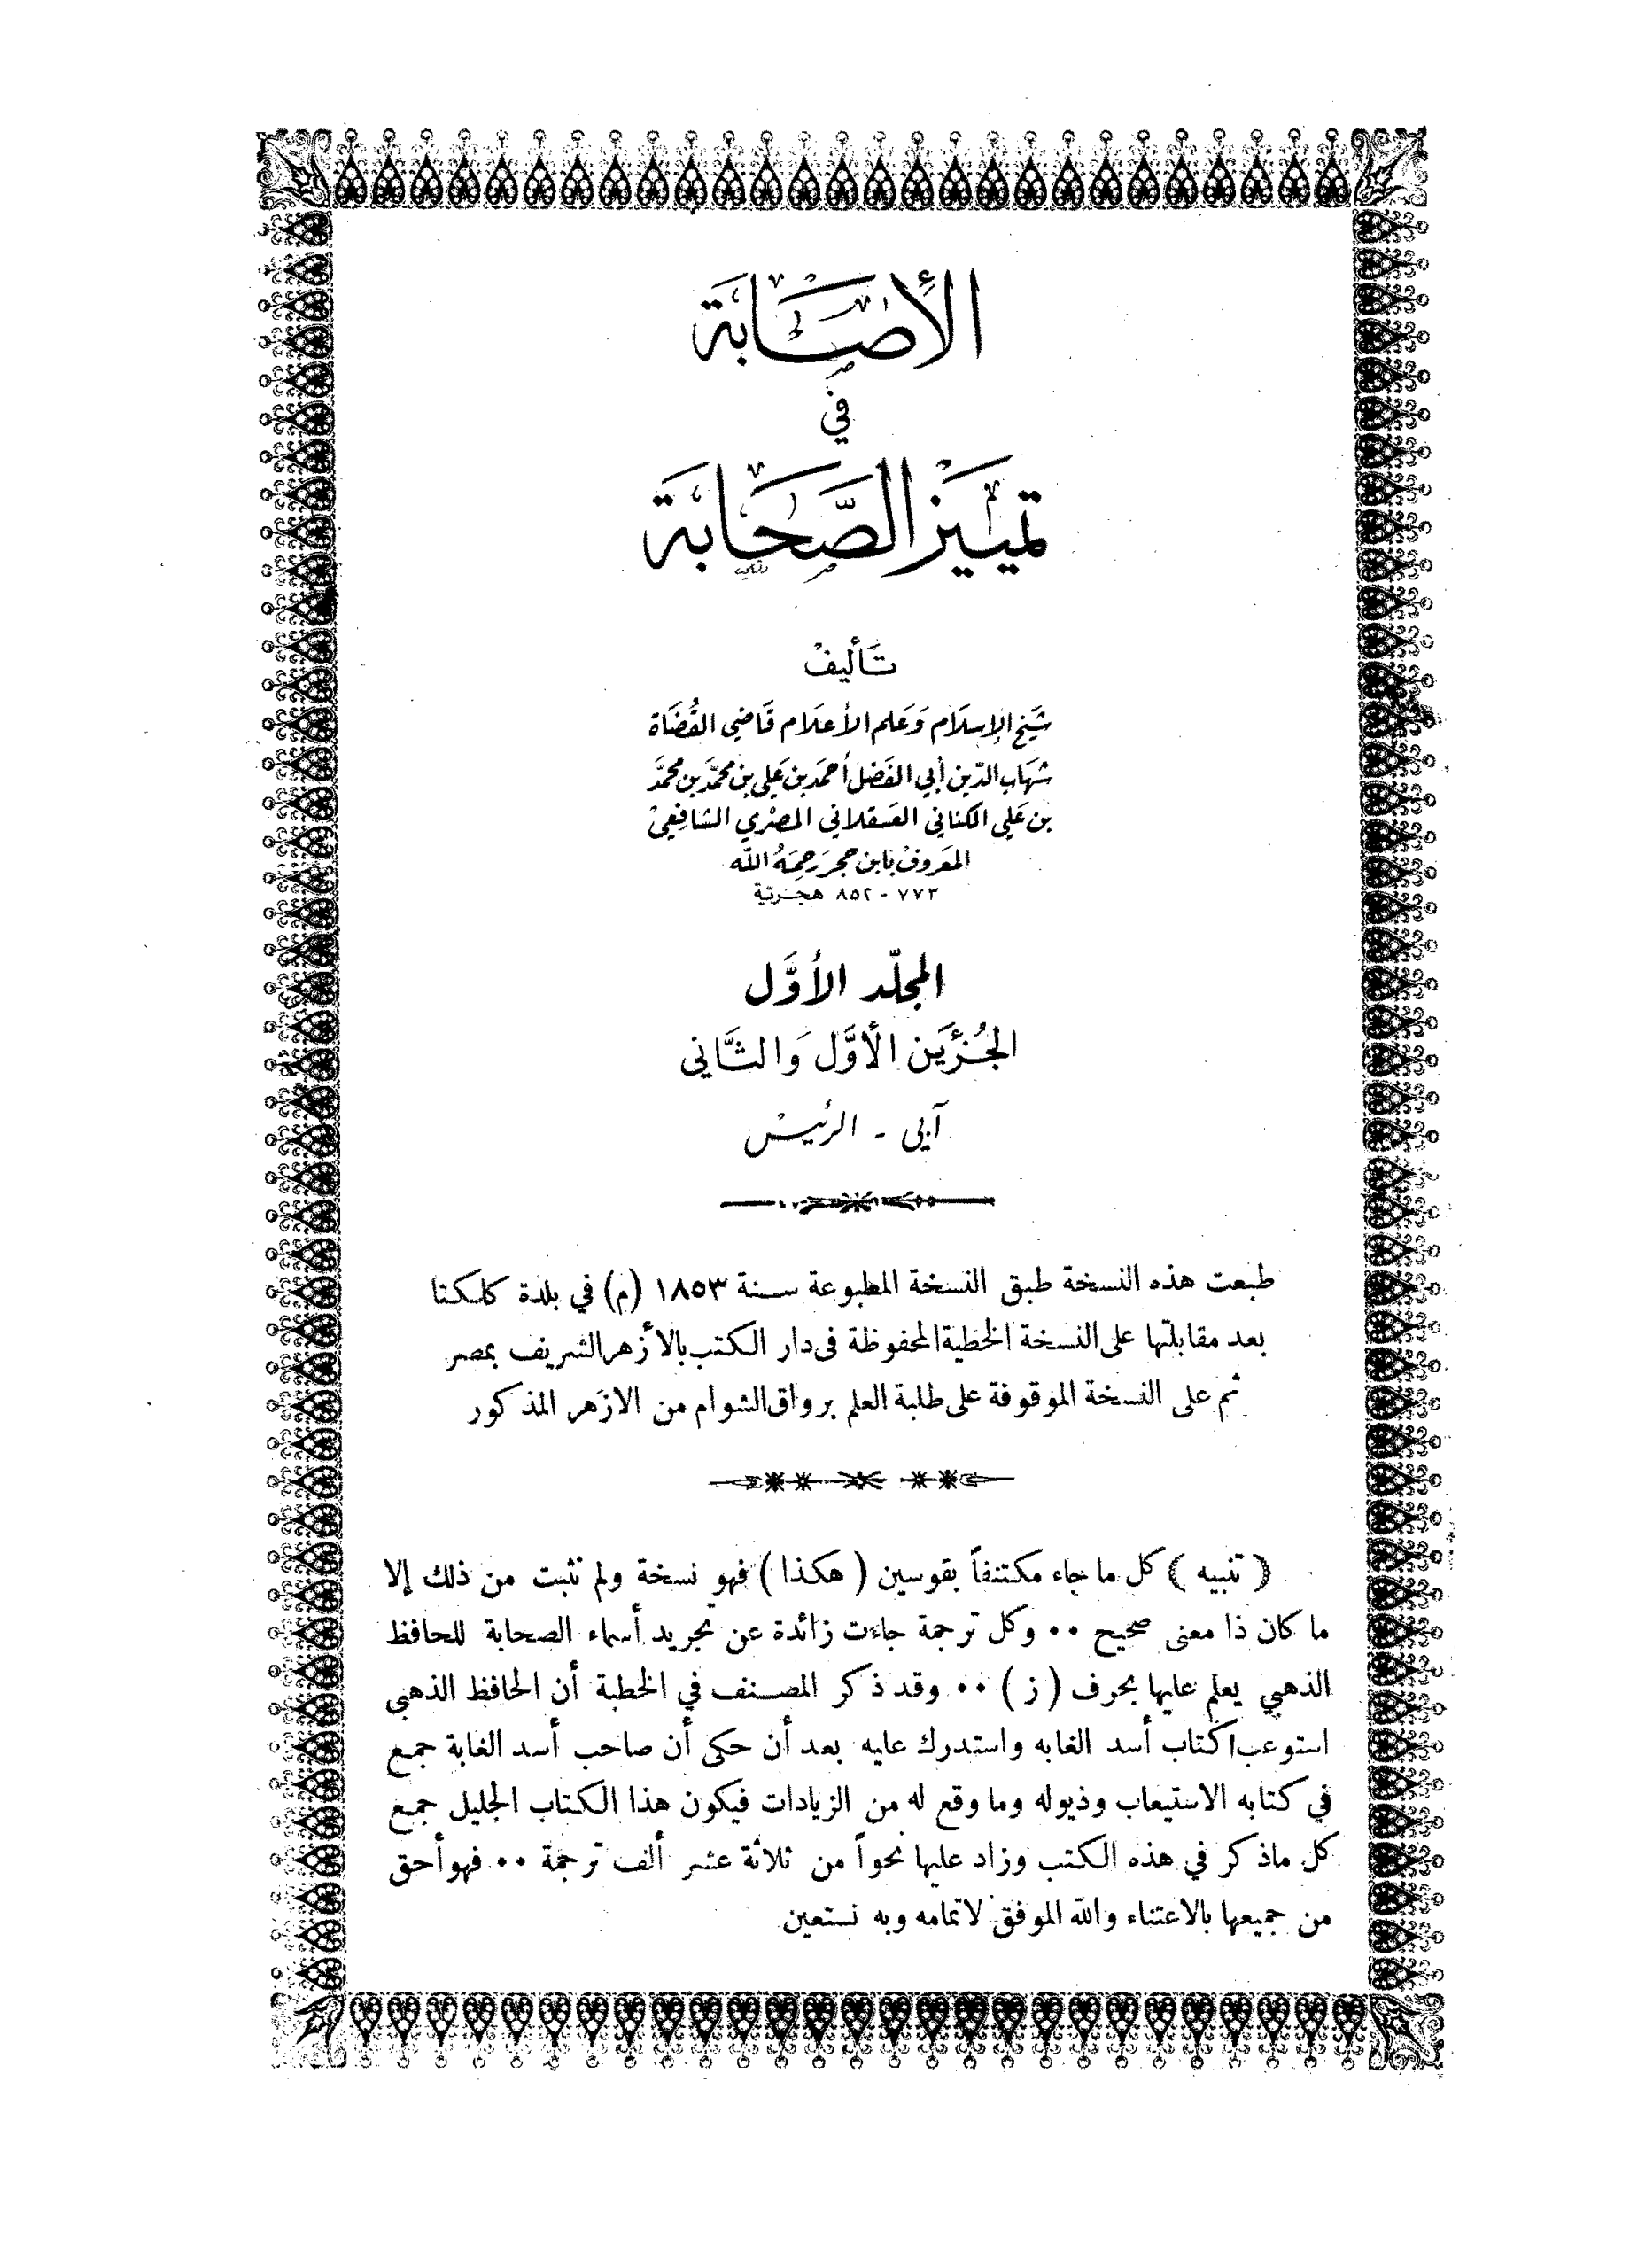 الأصابة
في
تمييز الصحابة
تأليف
شيخ الإسلام وعلم الأعلام قاضي القضاة
شهاب الدين أبي الفضل أحمد بن علي بن محمد بن محمد
بن علي الكناني العسقلاني المصري الشافعي
المعروف بابن حجر رحمه الله
٧٧٣ - ٨٥٢ هجرية
المجلد الأول
الجزئين الأول والثاني
آبي - الرئيس
طبعت هذه النسخة طبق النسخة المطبوعة سنة ١٨٥٣ (م) في بلدة كلكتا
بعد مقابلتها على النسخة الخطية المحفوظة في دار الكتب بالأزهر الشريف بمصر
ثم على النسخة الموقوفة على طلبة العلم برواق الشوام من الازهر المذكور
﴿ تنبيه ﴾ كل ما جاء مكتنفاً بقوسين ( هكذا ) فهو نسخة ولم نثبت من ذلك إلا
ما كان ذا معنى صحيح ٠٠ وكل ترجمة جاءت زائدة عن تجريد أسماء الصحابة للحافظ
الذهبي يعلم عليها بحرف ( ز ) ٠٠ وقد ذكر المصنف في الخطبة أن الحافظ الذهبي
استوعب كتاب أسد الغابه واستدرك عليه بعد أن حكى أن صاحب أسد الغابة جمع
في كتابه الاستيعاب وذيوله وما وقع له من الزيادات فيكون هذا الكتاب الجليل جمع
كل ماذكر في هذه الكتب وزاد عليها نحواً من ثلاثة عشر ألف ترجمة ٠٠ فهو أحق
من جميعها بالاعتناء والله الموفق لاتمامه وبه نستعين